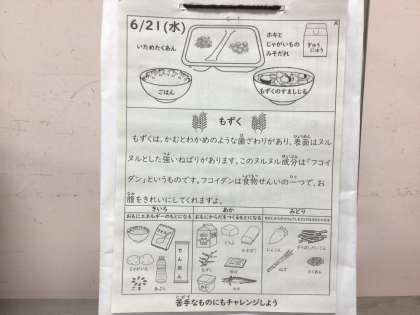 6/21(水)
いためたくあん
ホキと
じゃがいもの
みそだれ
ぎゅう
にゅう
ごはん
もずくのすましじる
もずく
もずくは、かむとわかめのような歯ざわりがあり、表面はヌル
ヌルとした強いねばりがあります。このヌルヌル成分は「フコイ
ダン」というものです。フコイダンは食物せんいの一つで、お
腹をきれいにしてくれますよ。
きいろ
あか
みどり
おもにエネルギーのもとになる
おもにからだをつくるもとになる
じゃがいも
でんぷん
ごま
あぶら
とうふ
もずく
みそ
にんじん
たくあん
苦手なものにもチャレンジしよう